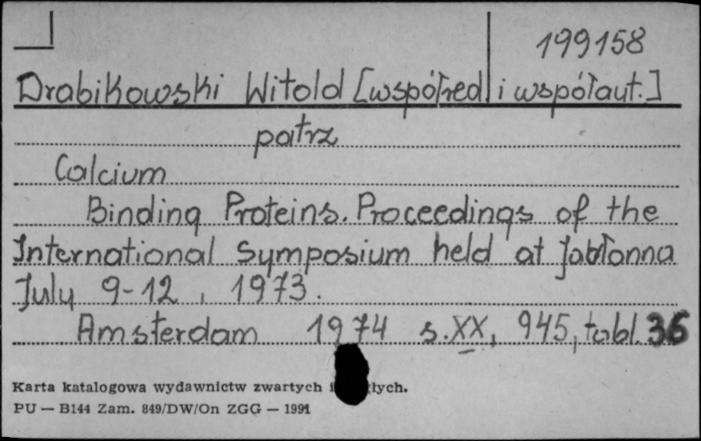 199158
Drabikowski Witold [współred i współaut.]
patrz
Calcium
Binding Proteins. Proceedings of the
International Symposium held at Jabłonna
July 9-12, 1973.
Amsterdam 1974 s. XX, 945, tabl. 36
Karta katalogowa wydawnictw zwartych
PU — B144 Zam. 849/DW/On ZGG — 1991